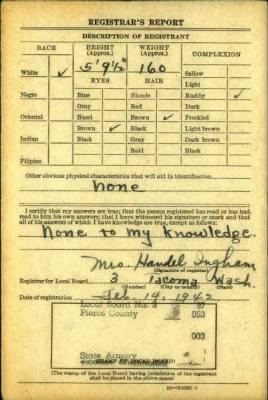 REGISTRAR'S REPORT
DESCRIPTION OF REGISTRANT
RACE HEIGHT (Approx.) WEIGHT (Approx.) COMPLEXION
White ✓ 5' 9½" 160 Sallow
EYES HAIR Light
Negro Blue Blonde Ruddy ✓
Gray Red Dark
Oriental Hazel Brown ✓ Freckled
Brown ✓ Black Light brown
Indian Black Gray Dark brown
Bald Black
Filipino
Other obvious physical characteristics that will aid in identification
None
I certify that my answers are true; that the person registered has read or has had
read to him his own answers; that I have witnessed his signature or mark and that
all of his answers of which I have knowledge are true, except as follows:
None to my knowledge.
Mrs. Handel Ingham
(Signature of registrar)
Registrar for Local Board 3 Tacoma Wash.
(Number) (City or county) (State)
Date of registration Feb. 14, 1942
Local Board No. 3
Pierce County 053
003
State Armory
(STAMP OF LOCAL BOARD)
(The stamp of the Local Board having jurisdiction of the registrant
shall be placed in the above space.)